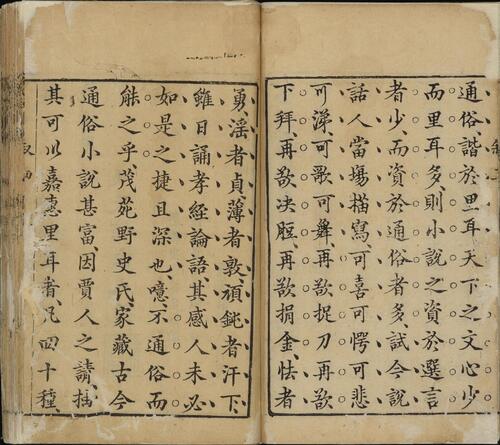 通俗、諧於里耳、天下之文心少
而里耳多、則小說之資於選言
者少、而資於通俗者多、試今說
話人當場描寫、可喜可愕、可悲
可涕、可歌可舞、再欲捉刀、再欲
下拜、再欲决脰、再欲捐金、怯者
勇、淫者貞、薄者敦、頑鈍者汗下、
雖日誦孝經論語、其感人未必
如是之捷且深也、噫、不通俗而
能之乎、茂苑野史氏、家藏古今
通俗小說甚富、因賈人之請、抽
其可以嘉惠里耳者、凡四十種、